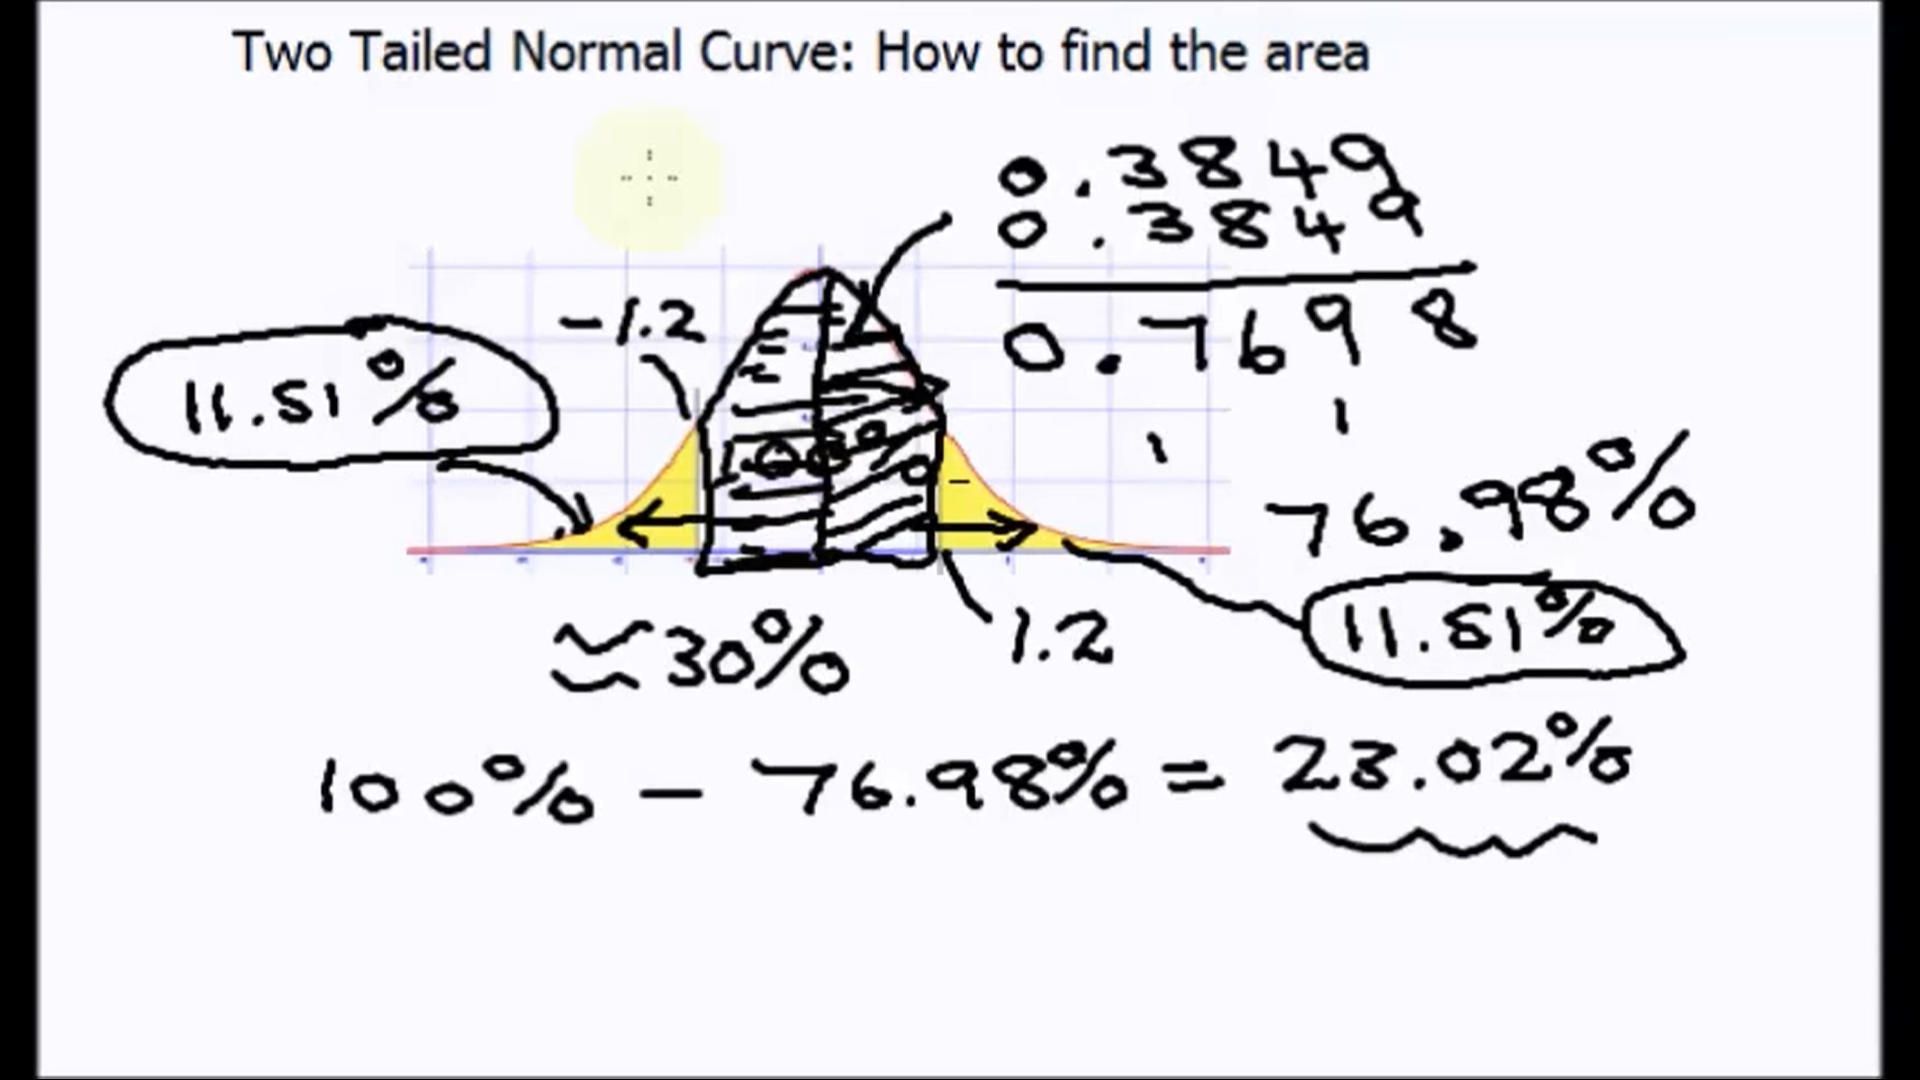 Two Tailed Normal Curve: How to find the area
0.3849
0.3849
0.7698
1 1
-1.2
11.51%
100%
76.98%
11.51%
1.2
≈30%
100% - 76.98% = 23.02%